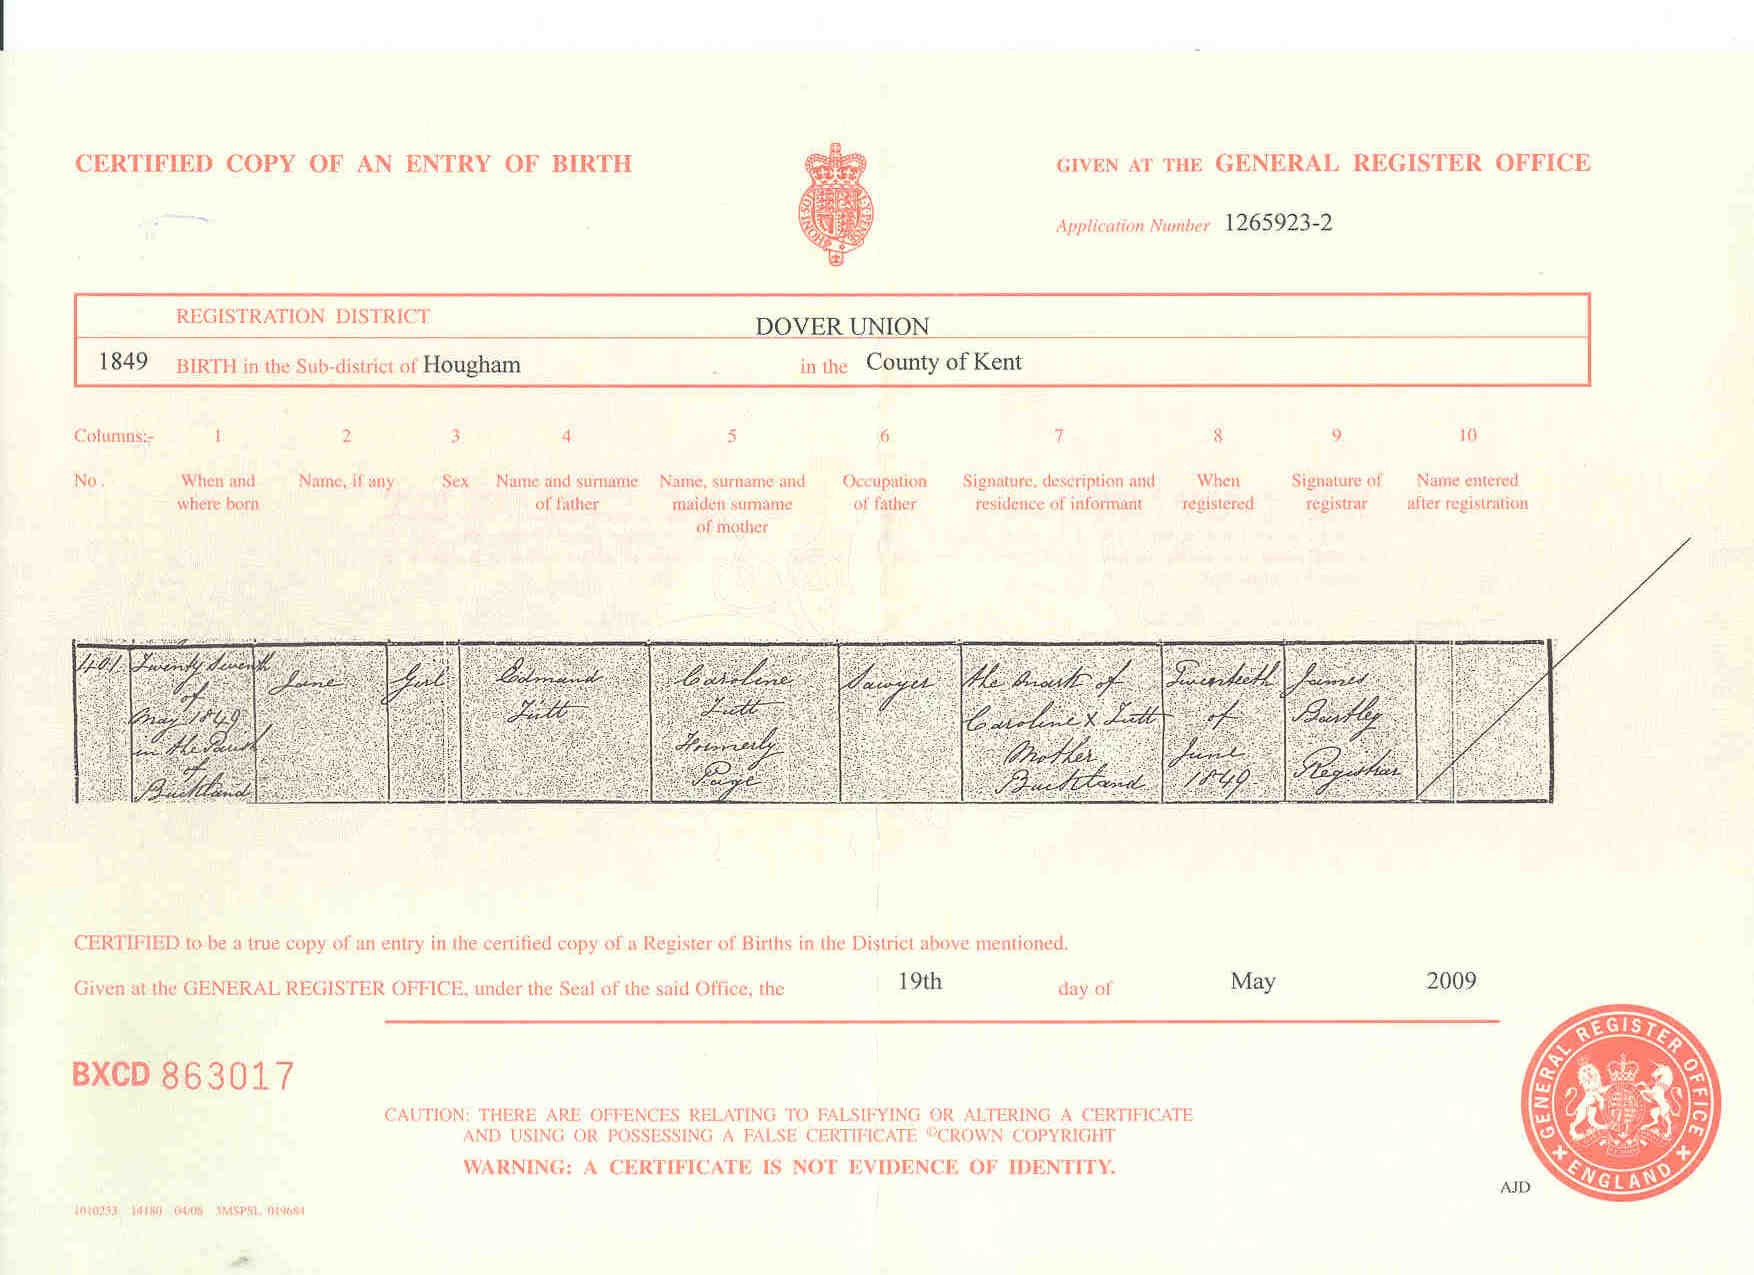 CERTIFIED COPY OF AN ENTRY OF BIRTH
GIVEN AT THE GENERAL REGISTER OFFICE
Application Number 1265923-2
REGISTRATION DISTRICT DOVER UNION
1849 BIRTH in the Sub-district of Hougham in the County of Kent
Columns:- 1 2 3 4 5 6 7 8 9 10
No. When and Name, if any Sex Name and surname Name, surname and Occupation Signature, description and When Signature of Name entered
where born of father maiden surname of father residence of informant registered registrar after registration
of mother
401 Twenty Seventh of May 1849 in the Parish of Buckland
Jane
Girl
Edmund Tutt
Caroline Tutt Formerly Paige
Sawyer
The Mark of Caroline X Tutt Mother Buckland
Twentieth of June 1849
James Bartley Registrar
CERTIFIED to be a true copy of an entry in the certified copy of a Register of Births in the District above mentioned.
Given at the GENERAL REGISTER OFFICE, under the Seal of the said Office, the 19th day of May 2009
BXCD 863017
CAUTION: THERE ARE OFFENCES RELATING TO FALSIFYING OR ALTERING A CERTIFICATE
AND USING OR POSSESSING A FALSE CERTIFICATE ©CROWN COPYRIGHT
WARNING: A CERTIFICATE IS NOT EVIDENCE OF IDENTITY.
GENERAL REGISTER OFFICE
ENGLAND
AJD
1010233 14180 04/08 3MSPSL 019684